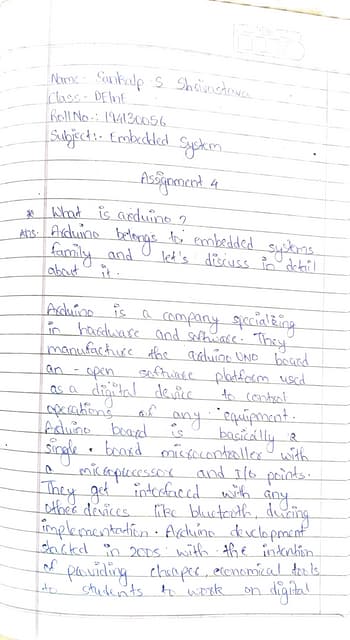 Name:- Sankalp S Shrivastava
Class:- DEInE
Roll No.: 194130056
Subject:- Embedded System
Assignment 4
* What is arduino ?
Ans. Arduino belongs to embedded systems
family and let's discuss in detail
about it.
Arduino is a company specializing
in hardware and software. They
manufacture the arduino UNO board
an - open software platform used
as a digital device to control
operations of any equipment.
Arduino board is basically a
single - board microcontroller with
a microprocessor and I/O points.
They get interfaced with any
other devices like bluetooth, during
implementation. Arduino development
started in 2005 with the intention
of providing cheaper, economical tools
to students to work on digital